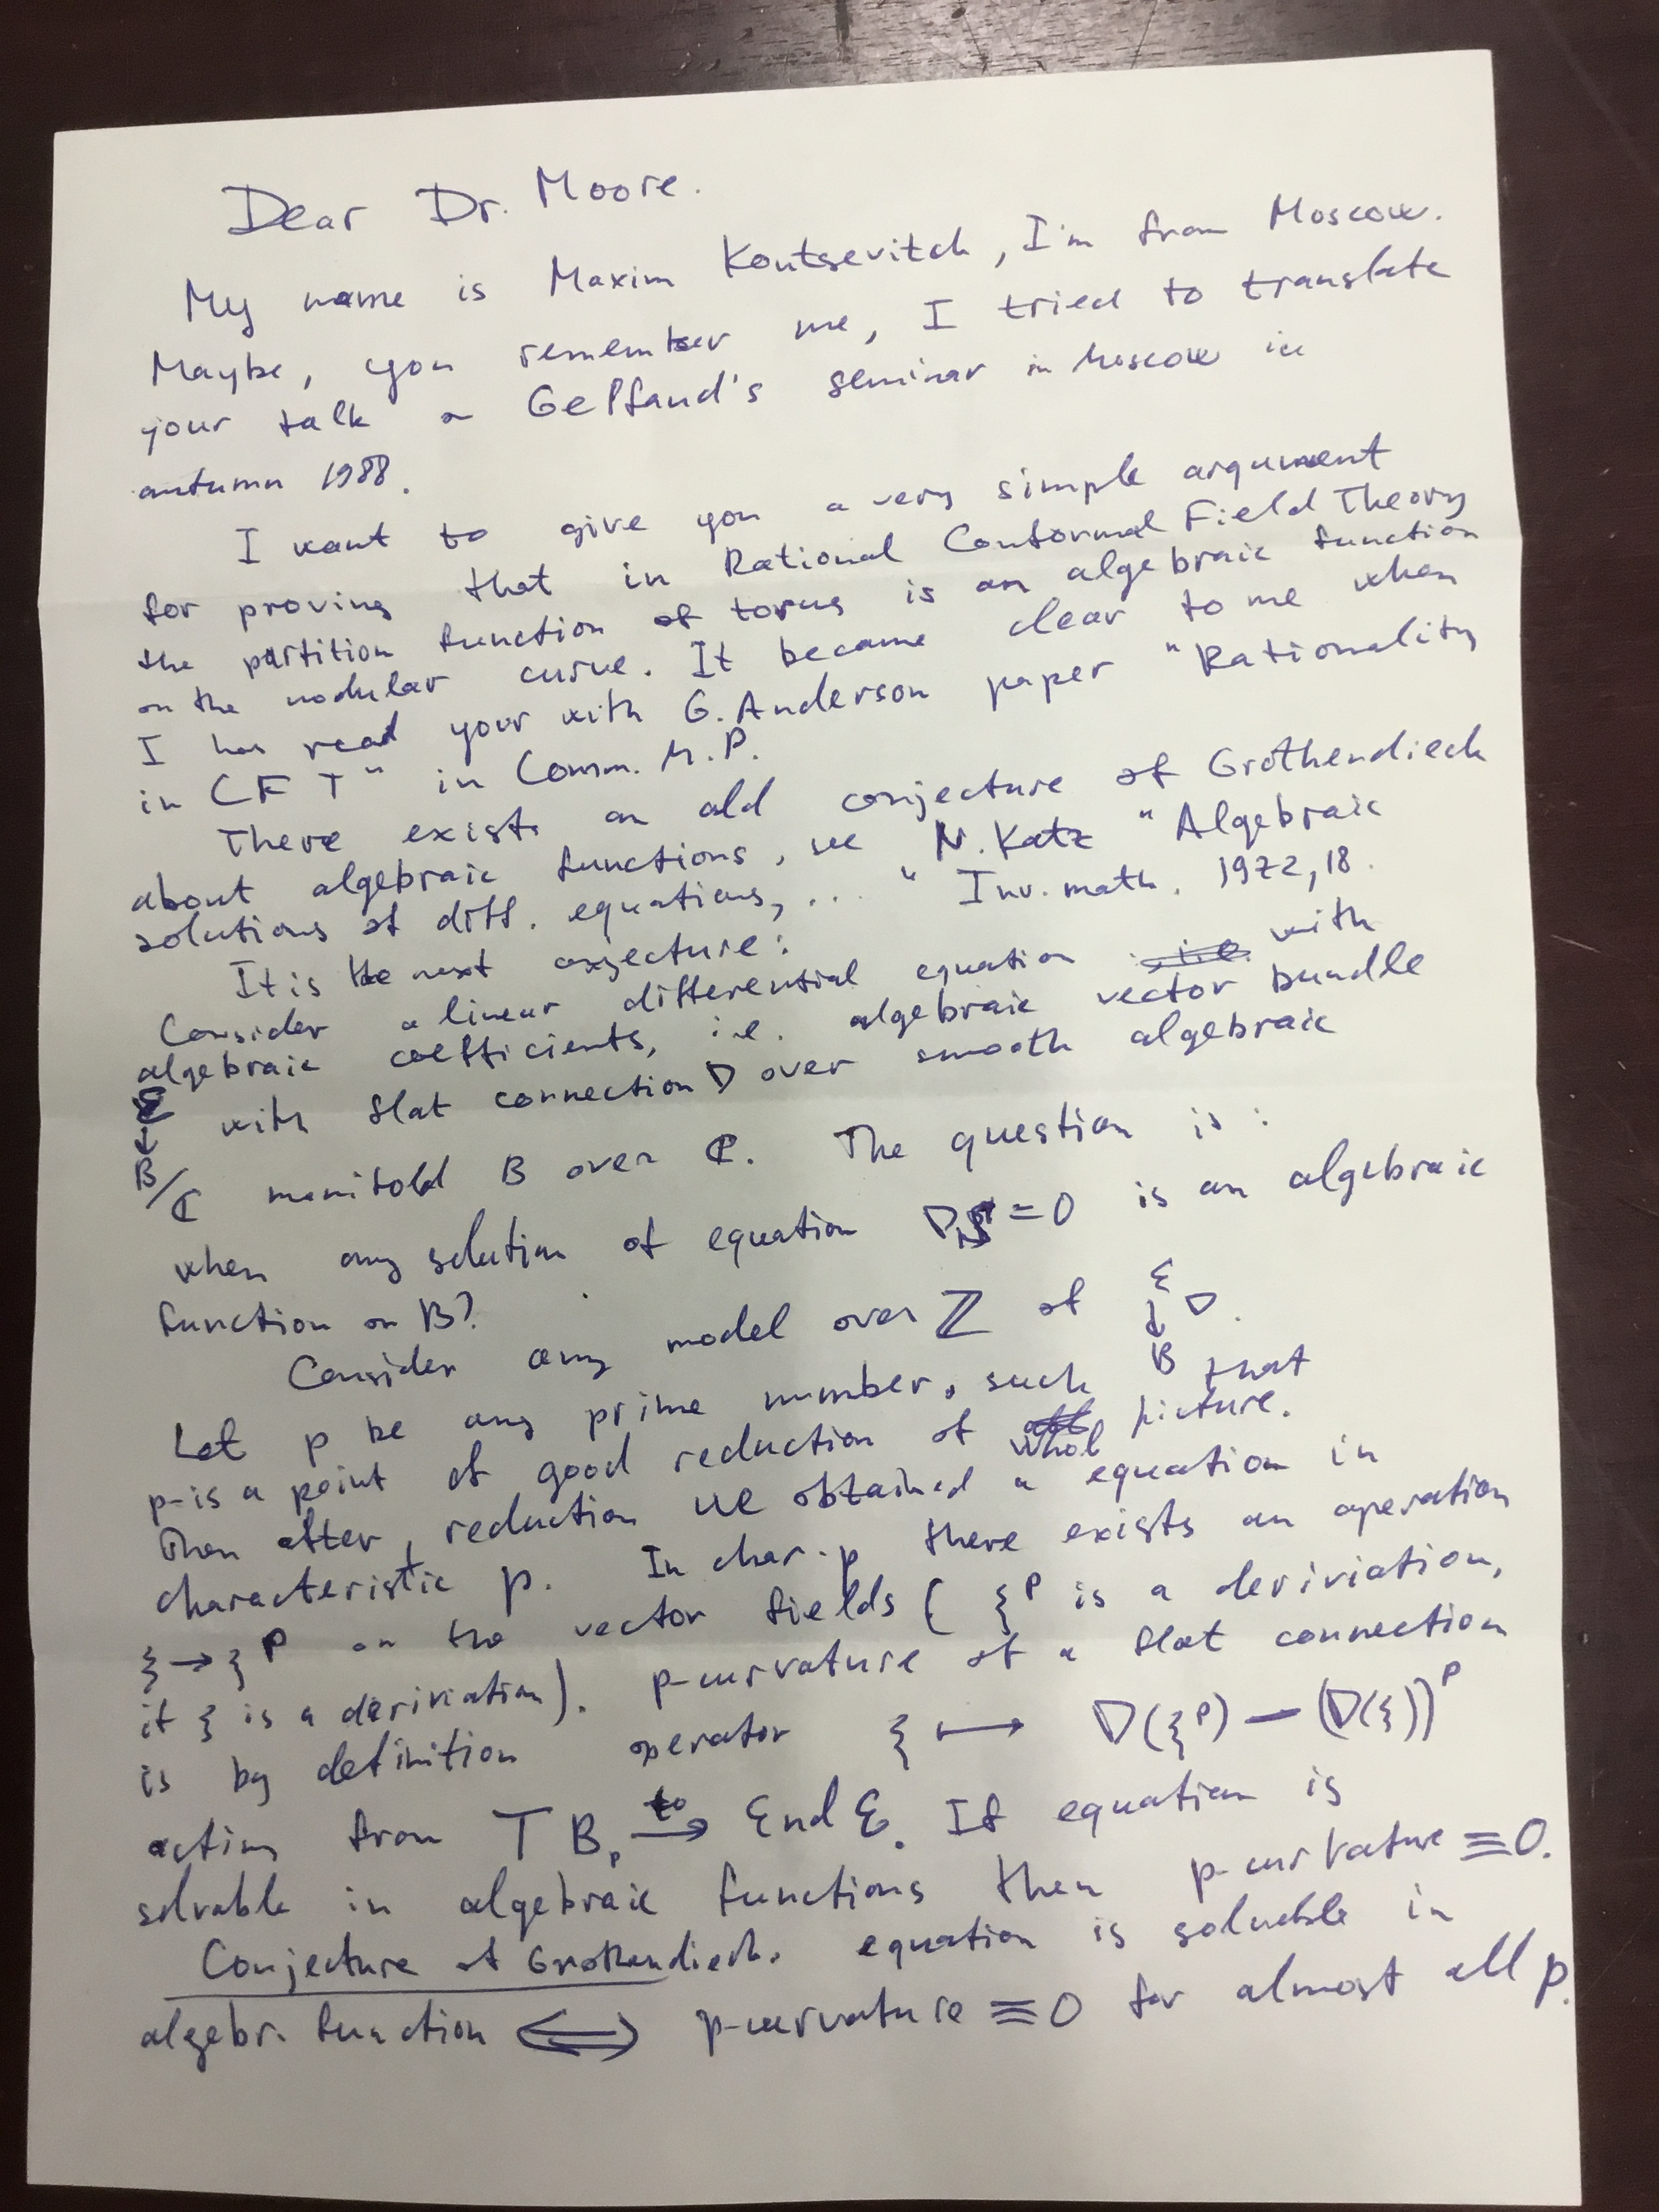 Dear Dr. Moore.
My name is Maxim Kontsevitch, I'm from Moscow.
Maybe, you remember me, I tried to translate
your talk on Gelfand's seminar in Moscow in
autumn 1988.
I want to give you a very simple argument
for proving that in Rational Conformal Field Theory
the partition function of torus is an algebraic function
on the modular curve. It became clear to me when
I has read your with G. Anderson paper "Rationality
in CFT" in Comm. M. P.
There exists an old conjecture of Grothendieck
about algebraic functions, see N. Katz "Algebraic
solutions of diff. equations, ... " Inv. math. 1972, 18.
It is the next conjecture:
Consider a linear differential equation with
algebraic coefficients, i.e. algebraic vector bundle
ℰ ↓ B/ℂ with flat connection ∇ over smooth algebraic
manifold B over ℂ. The question is:
when any solution of equation ∇s=0 is an algebraic
function on B?
Consider any model over ℤ of ℰ ↓ B ∇.
Let p be any prime number, such that
p-is a point of good reduction of whol picture.
Then after reduction we obtained a equation in
characteristic p. In char. p there exists an operation
ξ→ξᵖ on the vector fields ( ξᵖ is a deriviation,
if ξ is a deriviation). p-curvature of a flat connection
is by definition operator ξ ⟼ ∇(ξᵖ) — (∇(ξ))ᵖ
acting from TB, → to End ℰ. If equation is
solvable in algebraic functions then p-curvature ≡0.
Conjecture of Grothendieck. equation is soluble in
algebr. function ⟺ p-curvature ≡0 for almost all p.